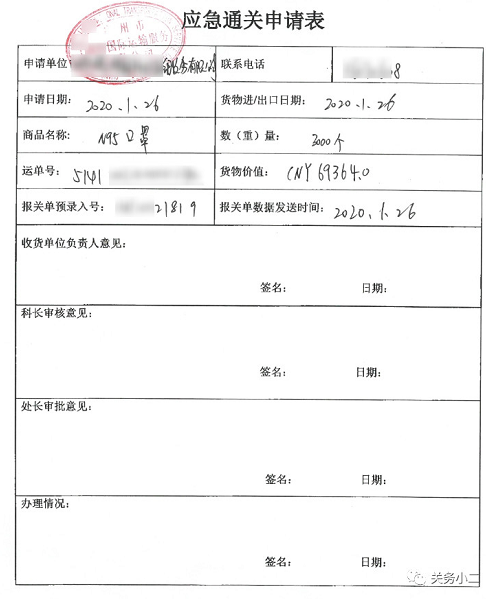 应急通关申请表
州市
国际运输服务
申请单位
联系电话 8
申请日期: 2020.1.26 货物进/出口日期: 2020.1.26
商品名称: N95口罩 数(重)量: 3000个
运单号: 5141 货物价值: CNY 69364.0
报关单预录入号: 21819 报关单数据发送时间: 2020.1.26
收货单位负责人意见:
签名: 日期:
科长审核意见:
签名: 日期:
处长审批意见:
签名: 日期:
办理情况:
签名: 日期:
关务小二